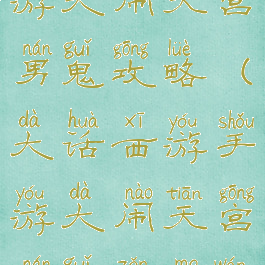 游大闹天宫
nán guǐ gōng lüè
男鬼攻略（
dà huà xī yóu shǒu
大话西游手
yóu dà nào tiān gōng
游大闹天宫
nán guǐ zěn me wán